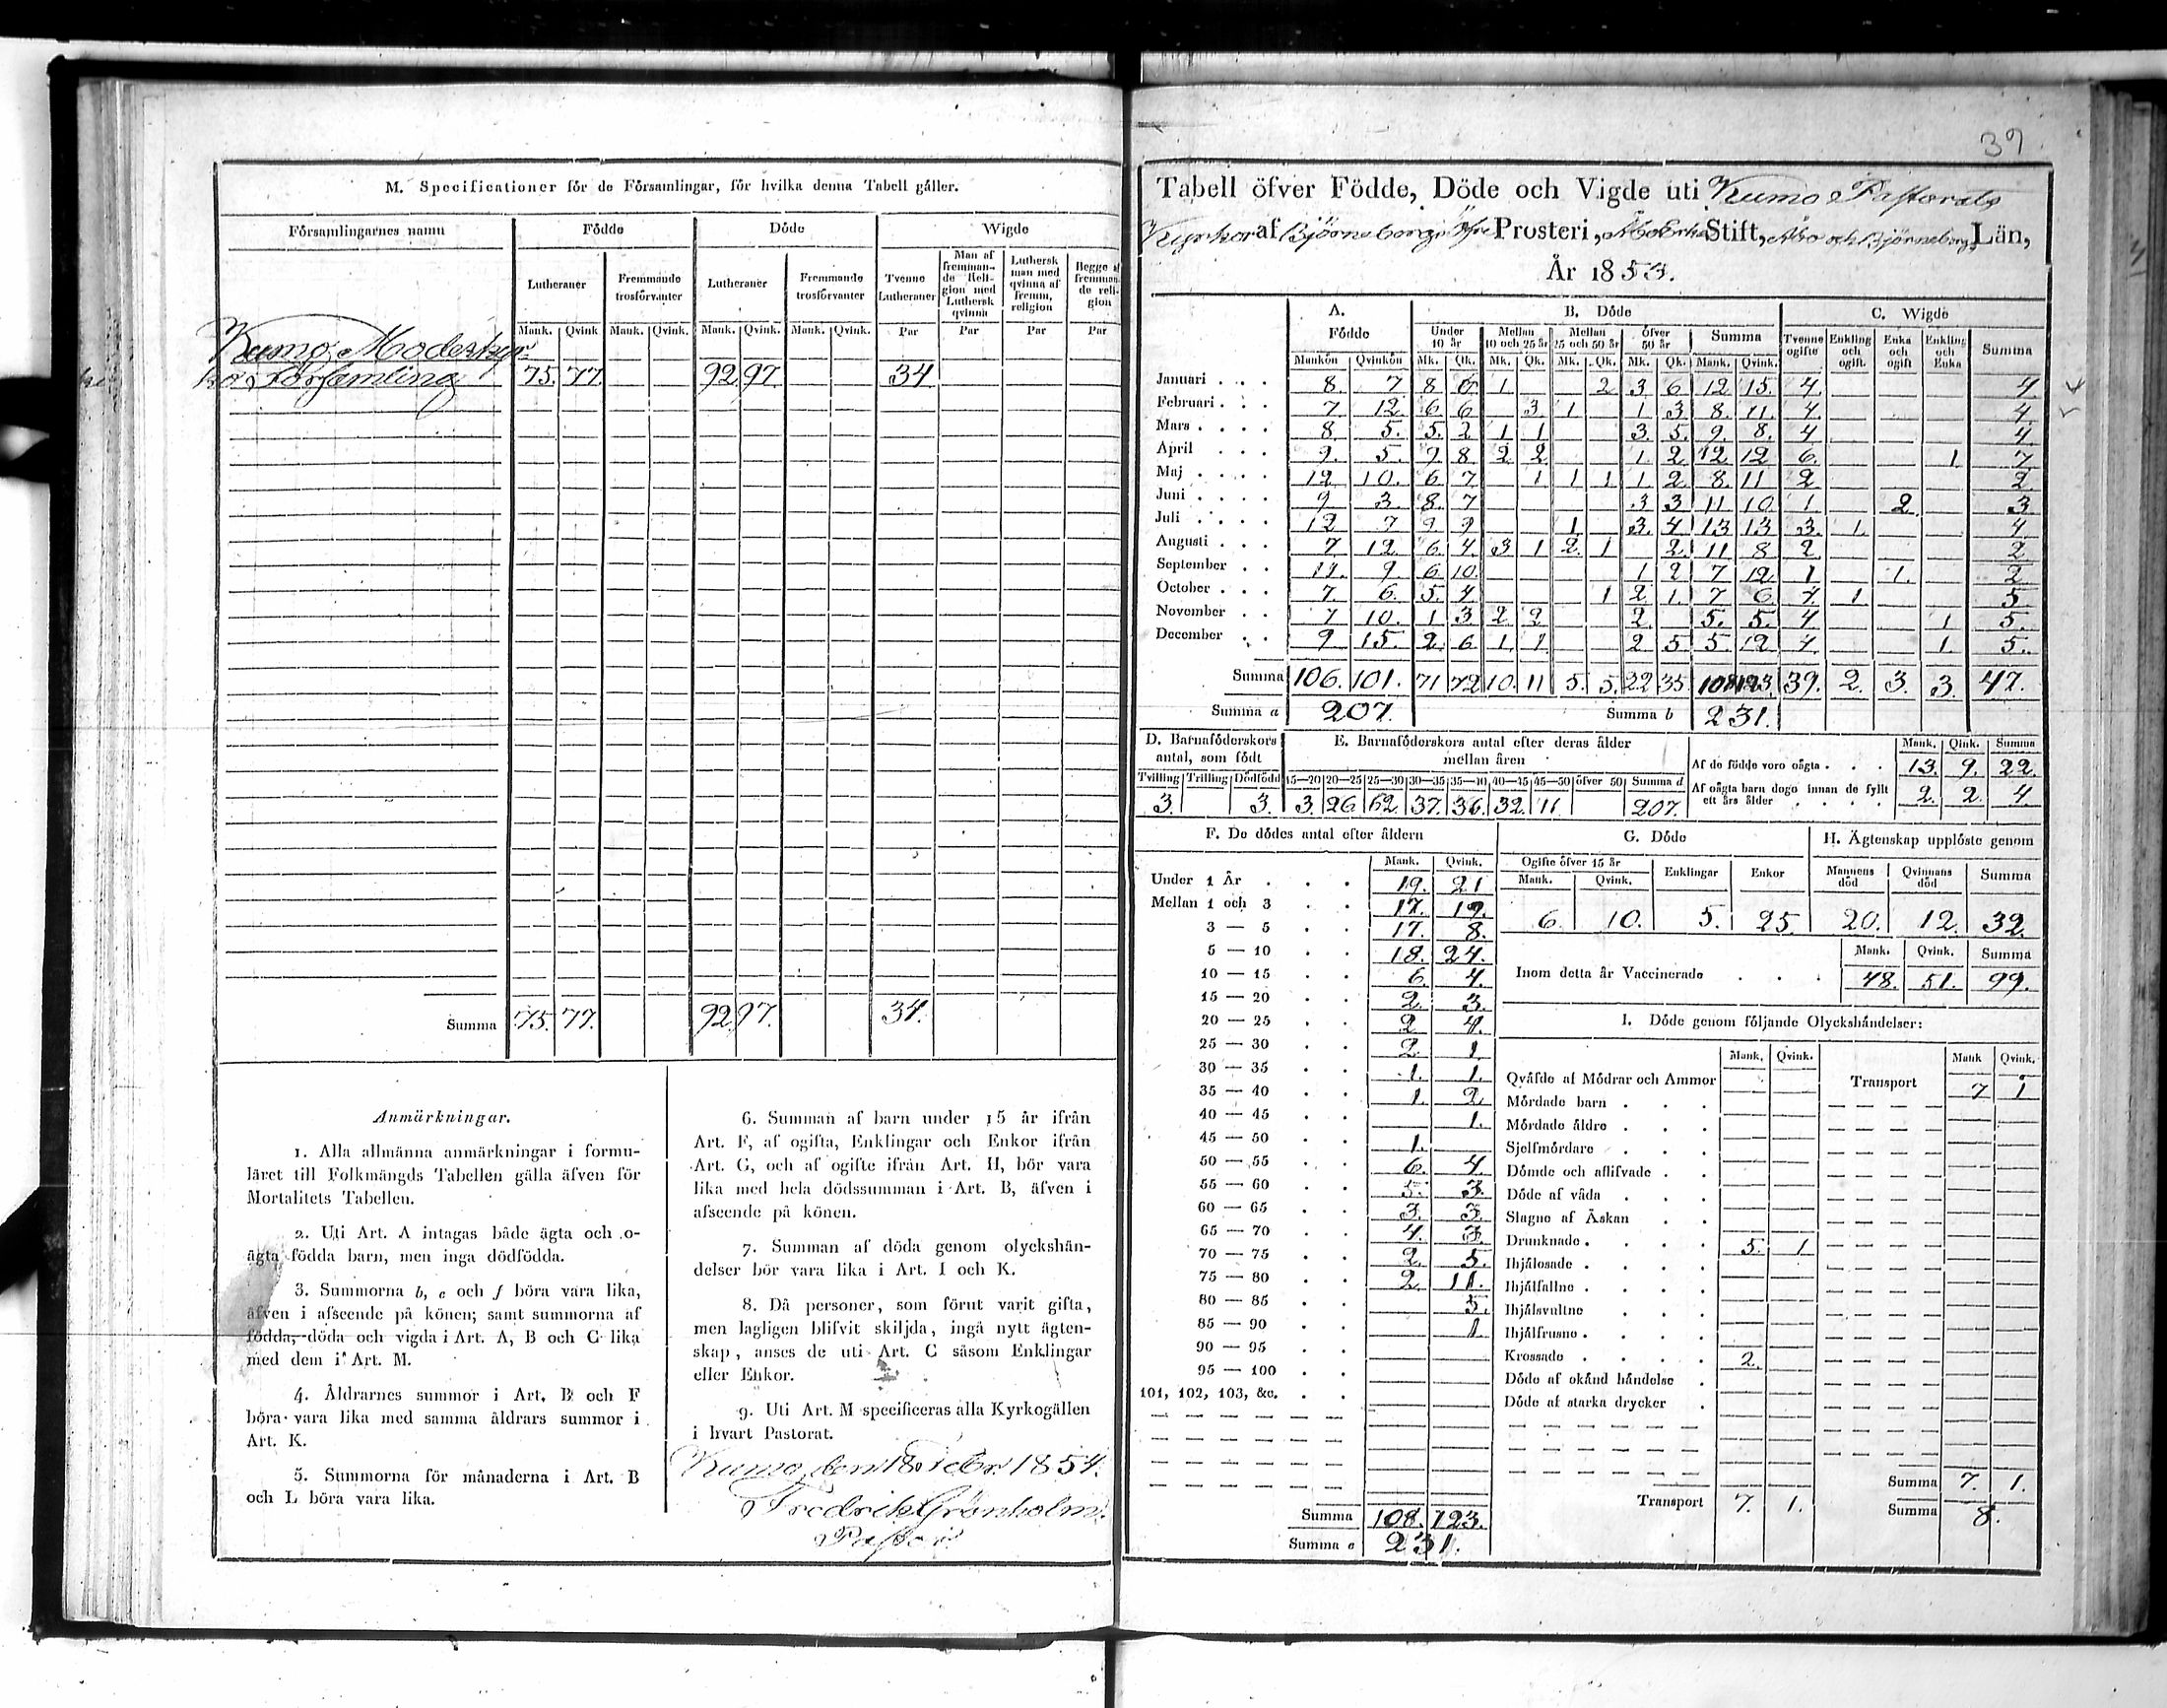 M. Specificationer för de Församlingar, för hvilka denna Tabell gäller.
Församlingarnes namn Födde Döde Wigde
Lutheraner Fremmande trosförvanter Lutheraner Fremmande trosförvanter Tvenne Lutheraner Man af fremmande Religion med Luthersk qvinna Luthersk man med qvinna af fremm. religion Begge af fremmande religion
Mank. Qvink Mank. Qvink. Mank. Qvink. Mank. Qvink. Par Par Par Par
Kumo Moderkyr
ko Församling 75. 77. 92 97. 34
Summa 75. 77. 92 97. 34.
Anmärkningar.
1. Alla allmänna anmärkningar i formu-
läret till Folkmängds Tabellen gälla äfven för
Mortalitets Tabellen.
2. Uti Art. A intagas både ägta och o-
ägta födda barn, men inga dödfödda.
3. Summorna b, e och f böra vara lika,
äfven i afseende på könen; samt summorna af
födda, döda och vigda i Art. A, B och C lika
med dem i Art. M.
4. Åldrarnes summor i Art. B och F
böra vara lika med samma åldrars summor i
Art. K.
5. Summorna för månaderna i Art. B
och L böra vara lika.
6. Summan af barn under 15 år ifrån
Art. F, af ogifta, Enklingar och Enkor ifrån
Art. G, och af ogifte ifrån Art. H, bör vara
lika med hela dödssumman i Art. B, äfven i
afseende på könen.
7. Summan af döda genom olyckshän-
delser bör vara lika i Art. I och K.
8. Då personer, som förut varit gifta,
men lagligen blifvit skiljda, ingå nytt ägten-
skap, anses de uti Art. C såsom Enklingar
eller Enkor.
9. Uti Art. M specificeras alla Kyrkogällen
i hvart Pastorat.
Kumo, den 18 Febr. 1854.
Fredrik Grönholm.
Pastor
39
Tabell öfver Födde, Döde och Vigde uti Kumo Pastorats
Kyrkor af Björneborgs Öfre Prosteri, Åbo Erke Stift, Åbo och Björneborgs Län,
År 1853.
A. Födde B. Döde C. Wigde
Under 10 år Mellan 10 och 25 år Mellan 25 och 50 år öfver 50 år Summa Tvenne ogifte Enkling och ogift. Enka och ogift Enkling och Enka Summa
Mankön Qvinkön Mk. Qk. Mk. Qk. Mk. Qk. Mk. Qk. Mank. Qvink.
Januari 8. 7 8 6 1 2 3 6 12 15. 4. 4.
Februari 7 12. 6 6 3 1 1 3 8. 11. 4. 4.
Mars 8. 5. 5. 2 1 1 3. 5. 9. 8. 4 4.
April 9. 5. 9 8 2 2 1 2 12. 12 6. 1 7
Maj 12 10. 6 7 1 1 1 1 2 8. 11 2 2.
Juni 9 3. 8. 7 3 3 11 10 1. 2 3
Juli 12 7 9 9 1. 3. 4 13 13 3. 1. 4
Augusti 7 12. 6. 4. 3 1 2. 1 2. 11 8 2. 2
September 11. 9. 6. 10. 1 2 7 12 1 1. 2
October 7 6. 5. 4 1 2 1. 7 6 4 1 5.
November 7 10. 1 3 2 2 2. 5. 5. 4 1 5.
December 9 15. 2. 6 1 1 2 5 5. 12 4. 1. 5.
Summa 106. 101. 71 72 10. 11 5. 5. 22 35. 108 123. 39. 2. 3. 3. 47.
Summa a 207. Summa b 231.
D. Barnaföderskors antal, som födt
Tvilling Trilling Dödfödd
3. 3.
E. Barnaföderskors antal efter deras ålder mellan åren
15—20 20—25 25—30 30—35 35—40 40—45 45—50 öfver 50 Summa d
3. 26. 62. 37. 36. 32. 11. 207.
Mank. Qink. Summa
Af de födde voro oägta 13. 9. 22.
Af oägta barn dogo innan de fyllt ett års ålder 2. 2. 4.
F. De dödes antal efter åldern
Mank. Qvink.
Under 1 År 19. 21
Mellan 1 och 3 17. 19.
3 — 5 17. 8.
5 — 10 18. 24.
10 — 15 6. 4.
15 — 20 2. 3.
20 — 25 2 4.
25 — 30 2. 1
30 — 35 1. 1.
35 — 40 1. 2.
40 — 45 1.
45 — 50 1.
50 — 55 6. 4.
55 — 60 5. 3.
60 — 65 3. 3.
65 — 70 4. 3.
70 — 75 2. 5.
75 — 80 2. 11.
80 — 85 5.
85 — 90 1
90 — 95
95 — 100
101, 102, 103, &c.
Summa 108. 123.
Summa e 231.
G. Döde
Ogifte öfver 15 år Enklingar Enkor
Mank. Qvink.
6. 10. 5. 25.
H. Ägtenskap upplöste genom
Mannens död Qvinnans död Summa
20. 12. 32.
Mank. Qvink. Summa
Inom detta år Vaccinerade 48. 51. 99.
I. Döde genom följande Olyckshändelser:
Mank. Qvink. Mank Qvink.
Qväfde af Mödrar och Ammor Transport 7 1
Mördade barn
Mördade äldre
Sjelfmördare
Dömde och aflifvade
Döde af våda
Slagne af Åskan
Drunknade 5. 1
Ihjälosade
Ihjälfallne
Ihjälsvultne
Ihjälfrusne
Krossade 2.
Döde af okänd händelse
Döde af starka drycker
Summa 7. 1.
Transport 7. 1. Summa 8.